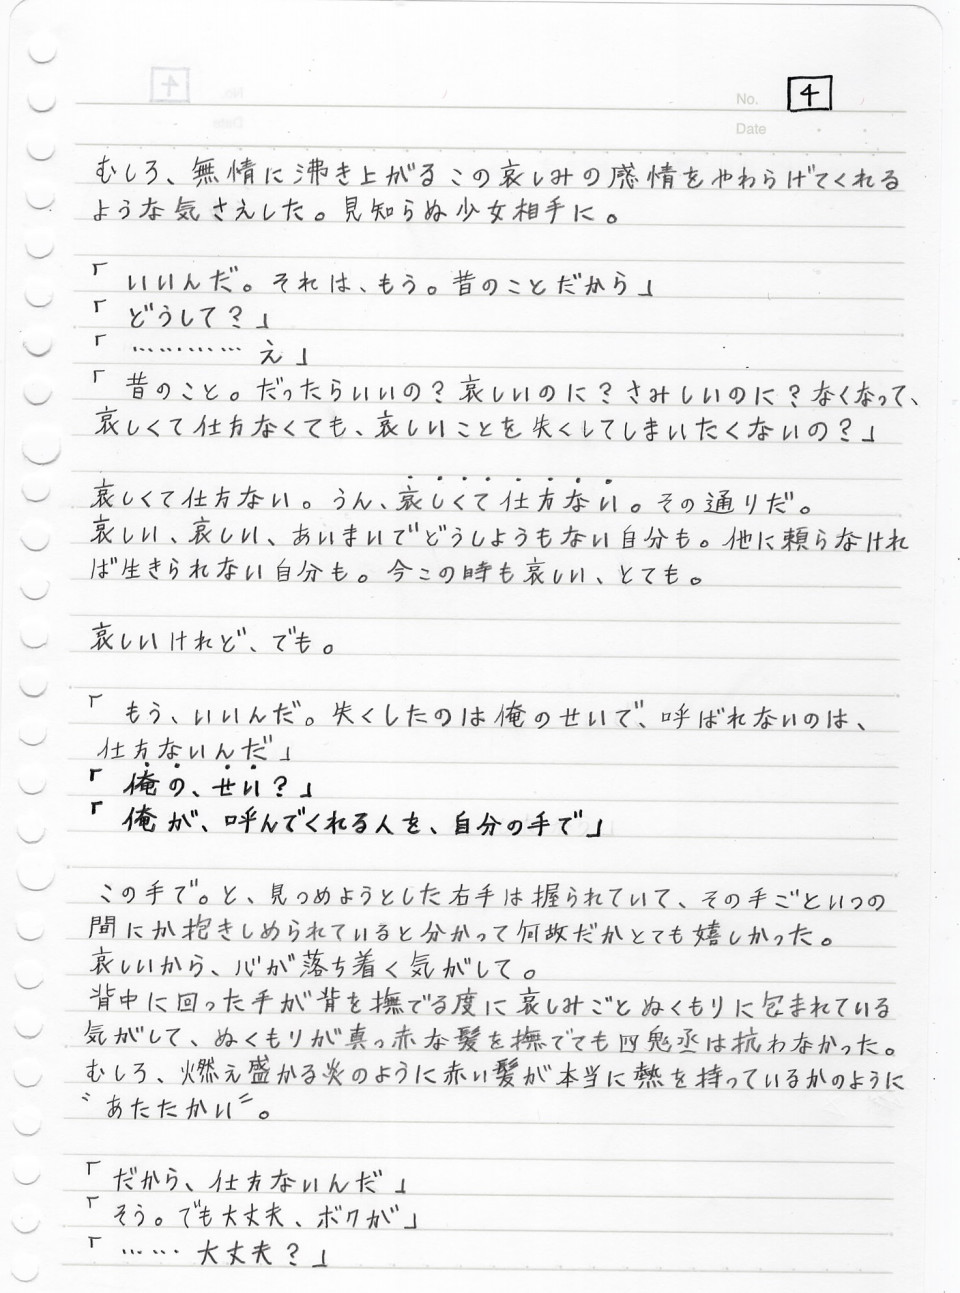 No. 4
Date
むしろ、無情に沸き上がるこの哀しみの感情をやわらげてくれる
ような気さえした。見知らぬ少女相手に。
「いいんだ。それは、もう。昔のことだから」
「どうして?」
「………… え」
「昔のこと。だったらいいの?哀しいのに?さみしいのに?なくなって、
哀しくて仕方なくても、哀しいことを失くしてしまいたくないの?」
哀しくて仕方ない。うん、哀しくて仕方ない。その通りだ。
哀しい、哀しい、あいまいでどうしようもない自分も。他に頼らなけれ
ば生きられない自分も。今この時も哀しい、とても。
哀しいけれど、でも。
「もう、いいんだ。失くしたのは俺のせいで、呼ばれないのは、
仕方ないんだ」
「俺の、せい?」
「俺が、呼んでくれる人を、自分の手で」
この手で。と、見つめようとした右手は握られていて、その手ごといつの
間にか抱きしめられていると分かって何故だかとても嬉しかった。
哀しいから、心が落ち着く気がして。
背中に回った手が背を撫でる度に哀しみごとぬくもりに包まれている
気がして、ぬくもりが真っ赤な髪を撫でても四鬼丞は抗わなかった。
むしろ、燃え盛かる炎のように赤い髪が本当に熱を持っているかのように
〝あたたかい〟。
「だから、仕方ないんだ」
「そう。でも大丈夫、ボクが」
「…… 大丈夫?」